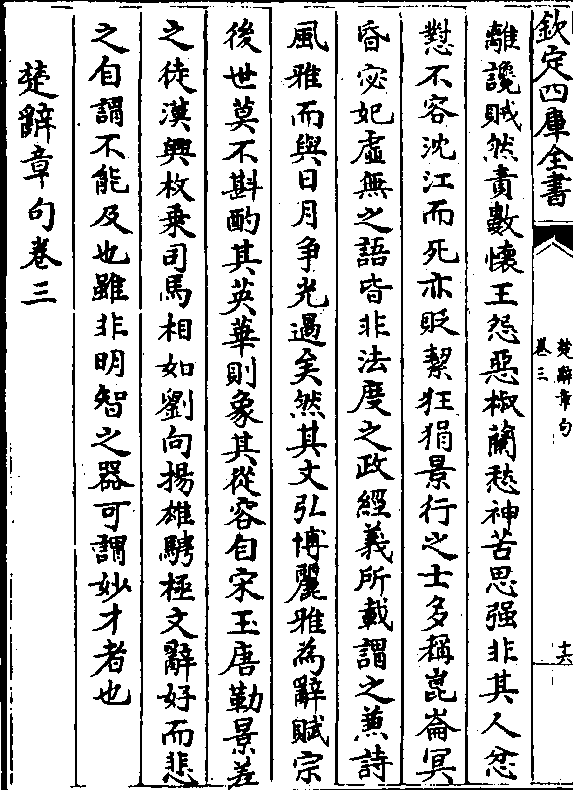 欽定四庫全書
楚辭章句
卷三
十六
離讒賊然責數懷王怨惡椒蘭愁神苦思强非其人忿
懟不容沈江而死亦貶絜狂狷景行之士多稱崑崙冥
昏宓妃虛無之語皆非法度之政經義所載謂之兼詩
風雅而與日月争光過矣然其文弘博麗雅為辭賦宗
後世莫不斟酌其英華則象其從容自宋玉唐勒景差
之徒漢興枚乗司馬相如劉向揚雄騁極文辭好而悲
之自謂不能及也雖非明智之器可謂妙才者也
楚辭章句卷三